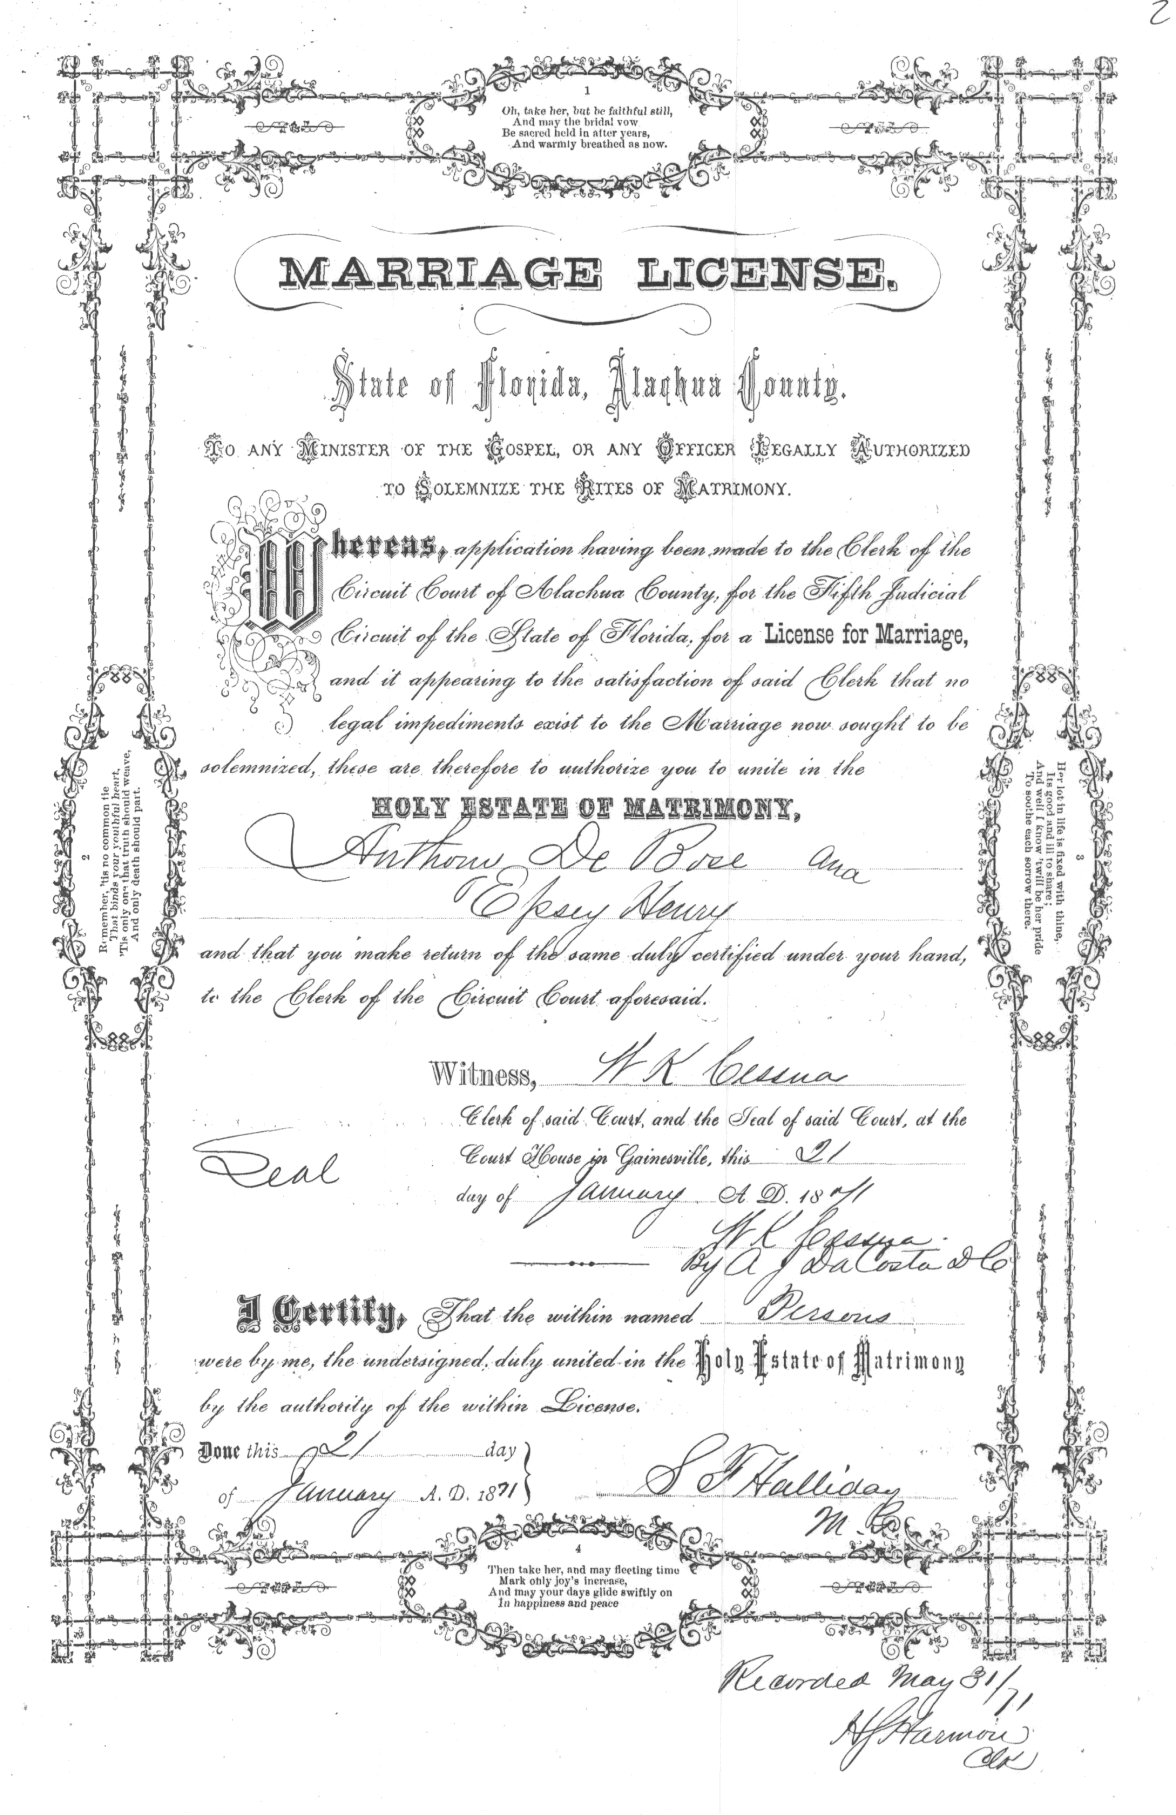 2
1
Oh, take her, but be faithful still,
And may the bridal vow
Be sacred held in after years,
And warmly breathed as now.
MARRIAGE LICENSE.
State of Florida, Alachua County.
TO ANY MINISTER OF THE GOSPEL, OR ANY OFFICER LEGALLY AUTHORIZED
TO SOLEMNIZE THE RITES OF MATRIMONY.
Whereas, application having been made to the Clerk of the
Circuit Court of Alachua County, for the Fifth Judicial
Circuit of the State of Florida, for a License for Marriage,
and it appearing to the satisfaction of said Clerk that no
legal impediments exist to the Marriage now sought to be
solemnized, these are therefore to authorize you to unite in the
HOLY ESTATE OF MATRIMONY,
Anthony De Bose and
Epsey Henry
and that you make return of the same duly certified under your hand,
to the Clerk of the Circuit Court aforesaid.
2
Remember, 'tis no common tie
That binds your youthful heart,
'Tis only one that truth should weave,
And only death should part.
3
Her lot in life is fixed with thine,
Its good and ill to share;
And well I know 'twill be her pride
To soothe each sorrow there.
Witness, W K Cessna
Clerk of said Court, and the Seal of said Court, at the
Court House in Gainesville, this 21
Seal
day of January A D. 1871
W K Cessna
By A J DaCosta D C
I Certify, That the within named Persons
were by me, the undersigned, duly united in the Holy Estate of Matrimony
by the authority of the within License.
Done this 21 day
of January A. D. 1871
S F Halliday
M. G.
4
Then take her, and may fleeting time
Mark only joy's increase,
And may your days glide swiftly on
In happiness and peace
Recorded May 31/71
H S Harmon
Clk